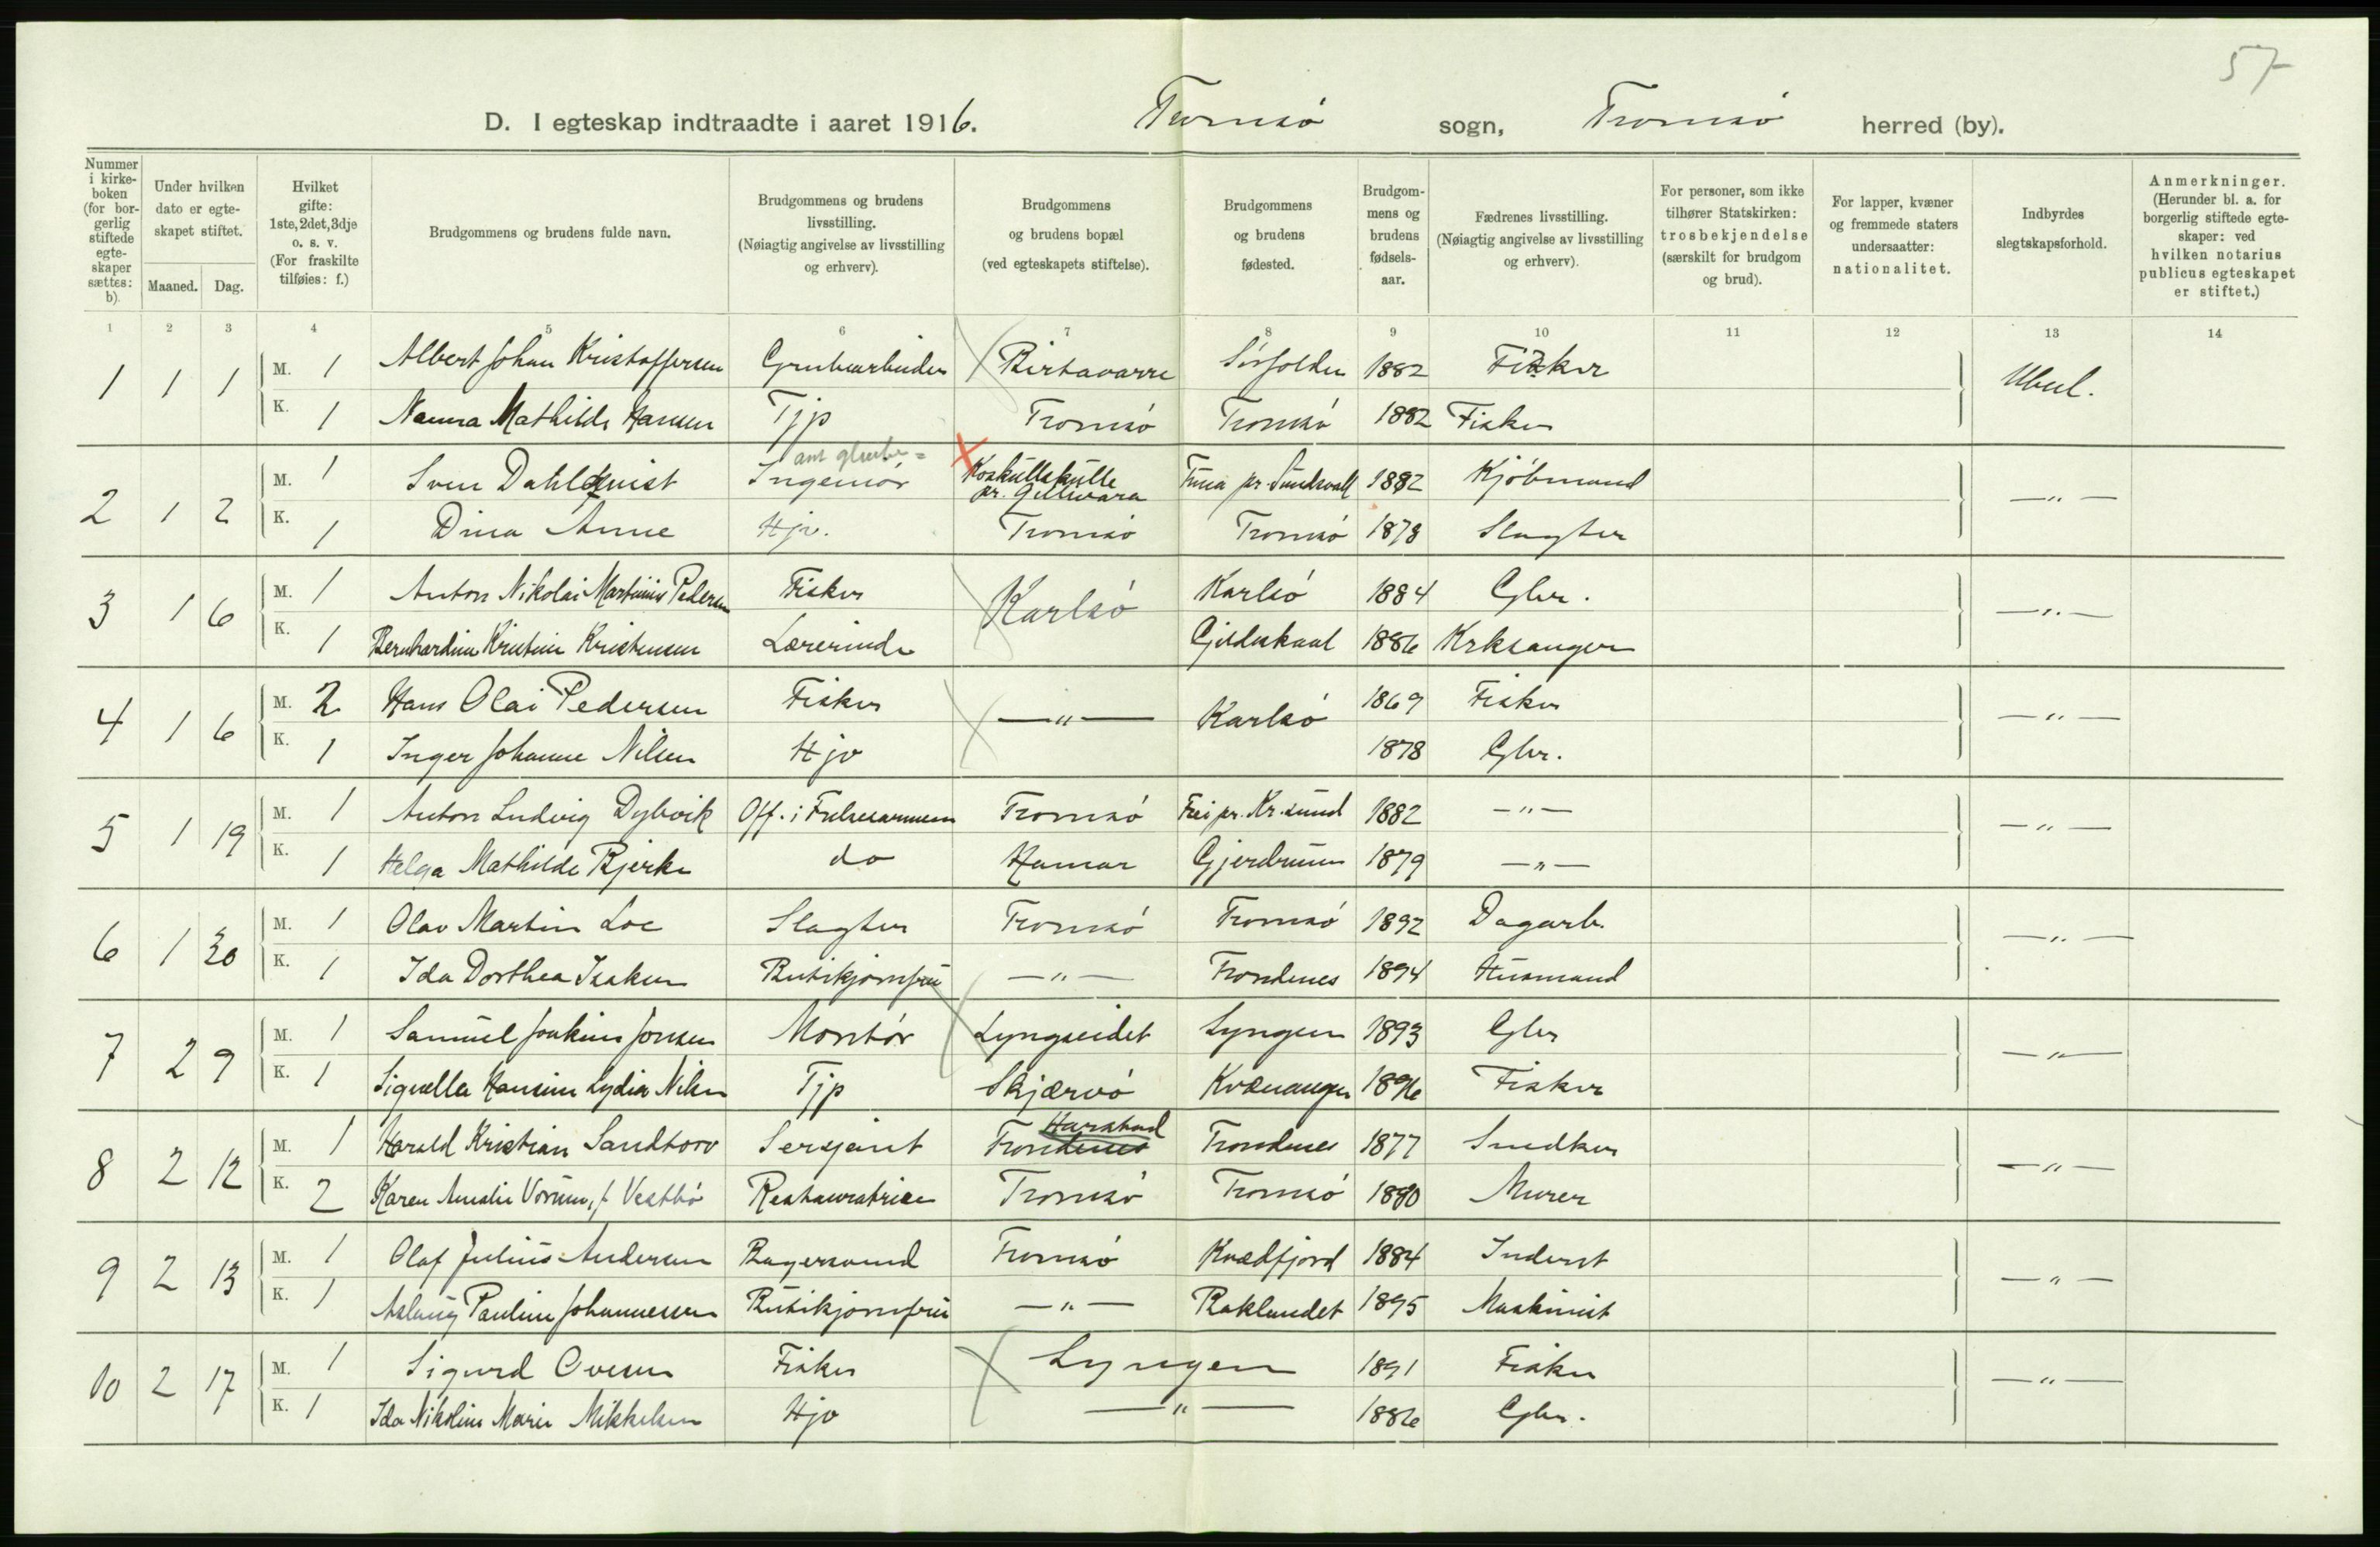 57
D. I egteskap indtraadte i aaret 1916. Tromsö sogn, Tromsö herred (by).
Nummer i kirkeboken (for borgerlig stiftede egteskaper sættes: b).
Under hvilken dato er egteskapet stiftet.
Maaned. Dag.
Hvilket gifte: 1ste, 2det, 3dje o. s. v. (For fraskilte tilføies: f.)
Brudgommens og brudens fulde navn.
Brudgommens og brudens livsstilling. (Nøiagtig angivelse av livsstilling og erhverv).
Brudgommens og brudens bopæl (ved egteskapets stiftelse).
Brudgommens og brudens fødested.
Brudgommens og brudens fødselsaar.
Fædrenes livsstilling. (Nøiagtig angivelse av livsstilling og erhverv).
For personer, som ikke tilhører Statskirken: trosbekjendelse (særskilt for brudgom og brud).
For lapper, kvæner og fremmede staters undersaatter: nationalitet.
Indbyrdes slegtskapsforhold.
Anmerkninger. (Herunder bl. a. for borgerlig stiftede egteskaper: ved hvilken notarius publicus egteskapet er stiftet.)
1 2 3 4 5 6 7 8 9 10 11 12 13 14
1 1 1 M. 1 Albert Johan Kristoffersen Grubearbeider Birtavarre Sörfolden 1882 Fisker Ubesl.
K. 1 Nanna Mathilde Hansen Tjp Tromsö Tromsö 1882 Fisker
2 1 2 M. 1 Sven Dahlqvist Ingeniör Koskullskulle pr. Gellivara Tuna pr. Sundsvall 1882 Kjöbmand —"—
K. 1 Dina Anne Hjv. Tromsö Tromsö 1878 Slagter
3 1 6 M. 1 Anton Nikolai Martinius Pedersen Fisker Karlsö Karlsö 1884 Gbr. —"—
K. 1 Bernhardine Kristine Kristensen Lærerinde Gjildeskaal 1886 Krksanger
4 1 6 M. 2 Hans Olai Pedersen Fisker —"— Karlsö 1869 Fisker —"—
K. 1 Inger Johanne Nilsen Hjv 1878 Gbr.
5 1 19 M. 1 Anton Ludvig Dybvik Off. i Frelsesarmeen Tromsö Frei pr. Kr.sund 1882 —"— —"—
K. 1 Helga Mathilde Bjerke do Hamar Gjerdrum 1879 —"—
6 1 30 M. 1 Olav Martin Loe Slagter Tromsö Tromsö 1892 Dagarb. —"—
K. 1 Ida Dorthea Isaksen Butikjomfru —"— Trondenes 1894 Husmand
7 2 9 M. 1 Samuel Joakim Jonsen Montör Lyngseidet Lyngen 1893 Gbr —"—
K. 1 Signella Hansine Lydia Nilsen Tjp Skjærvö Kvænangen 1896 Fisker
8 2 12 M. 1 Harald Kristian Sandtorv Sersjant Trondenes Harstad Trondenes 1877 Snedker —"—
K. 2 Karen Amalie Vorum, f. Vestbö Restauratrice Tromsö Tromsö 1880 Murer
9 2 13 M. 1 Olaf Julius Andersen Bagersvend Tromsö Kvædfjord 1884 Inderst —"—
K. 1 Aslaug Pauline Johannessen Butikjomfru —"— Baklandet 1895 Maskinist
10 2 17 M. 1 Sigurd Ovesen Fisker Lyngen 1891 Fisker —"—
K. 1 Ida Nikoline Marie Mikkelsen Hjv —"— 1886 Gbr.